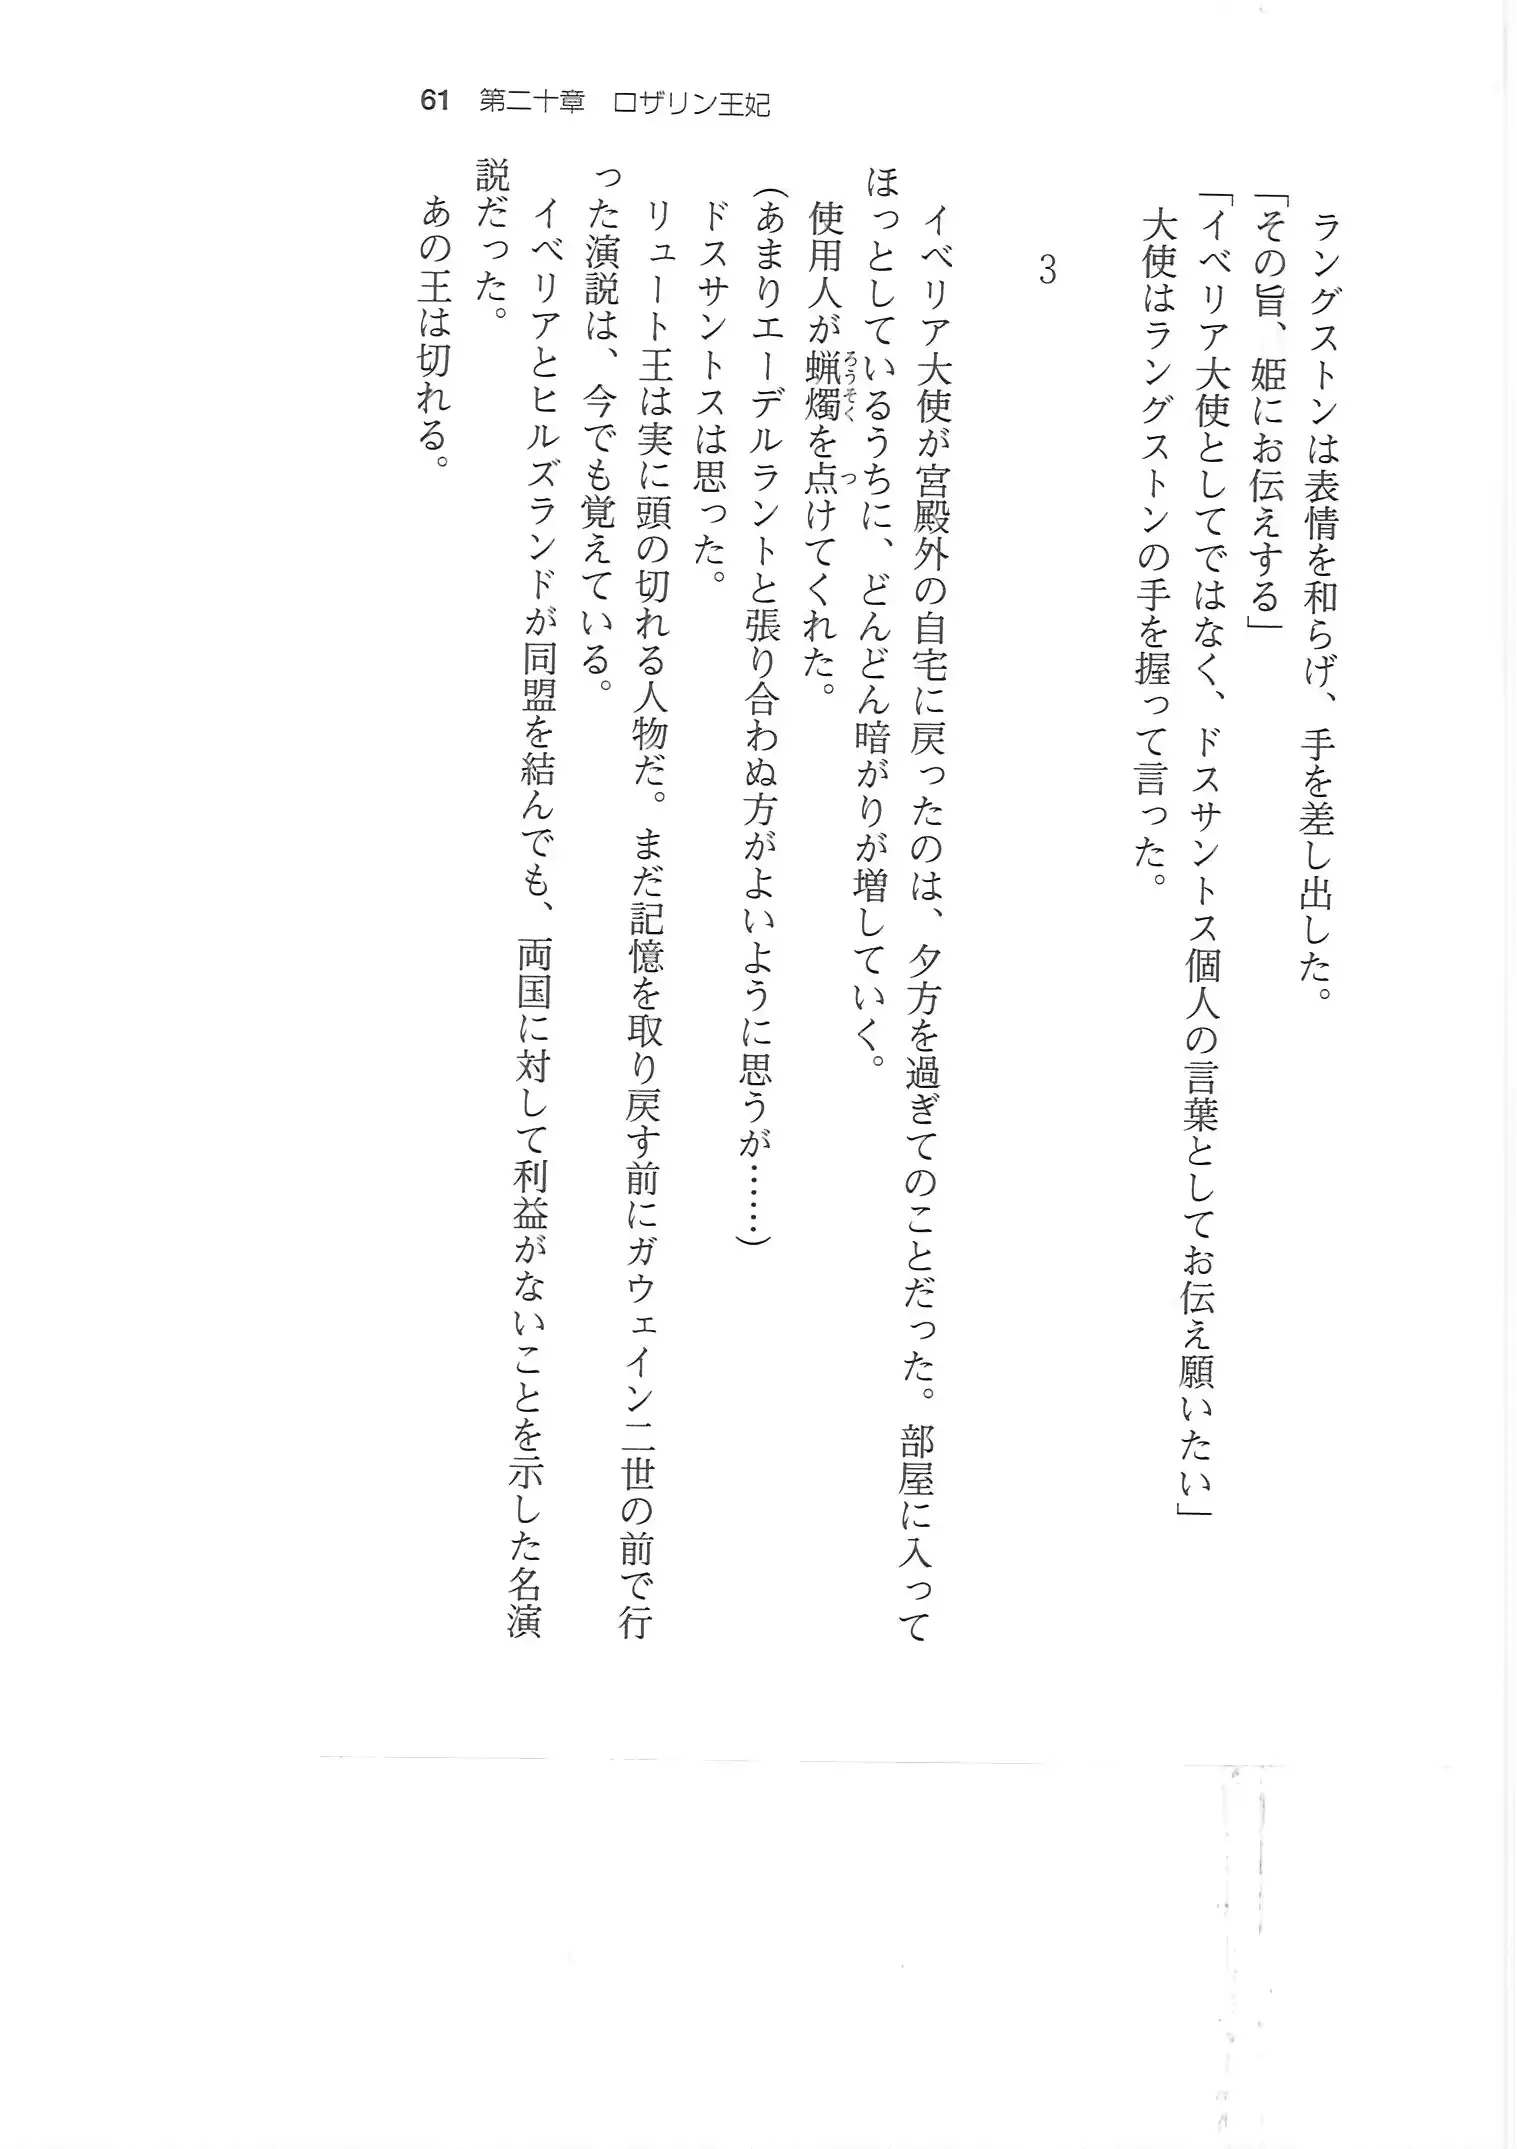 61 第二十章 ロザリン王妃
ラングストンは表情を和らげ、手を差し出した。
「その旨、姫にお伝えする」
「イベリア大使としてではなく、ドスサントス個人の言葉としてお伝え願いたい」
大使はラングストンの手を握って言った。
3
イベリア大使が宮殿外の自宅に戻ったのは、夕方を過ぎてのことだった。部屋に入って
ほっとしているうちに、どんどん暗がりが増していく。
使用人が蝋燭を点けてくれた。
ろうそく
つ
(あまりエーデルラントと張り合わぬ方がよいように思うが……)
ドスサントスは思った。
リュート王は実に頭の切れる人物だ。まだ記憶を取り戻す前にガウェイン二世の前で行
った演説は、今でも覚えている。
イベリアとヒルズランドが同盟を結んでも、両国に対して利益がないことを示した名演
説だった。
あの王は切れる。